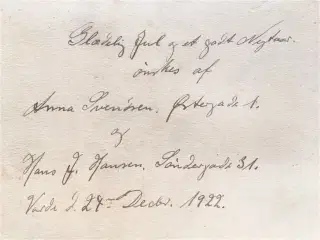 Glædelig Jul og et godt Nytaar.
ønskes af
Anna Svendsen. Østergade 1.
og
Hans J. Hansen. Søndergade 31.
Varde d. 24de Decbr. 1922.